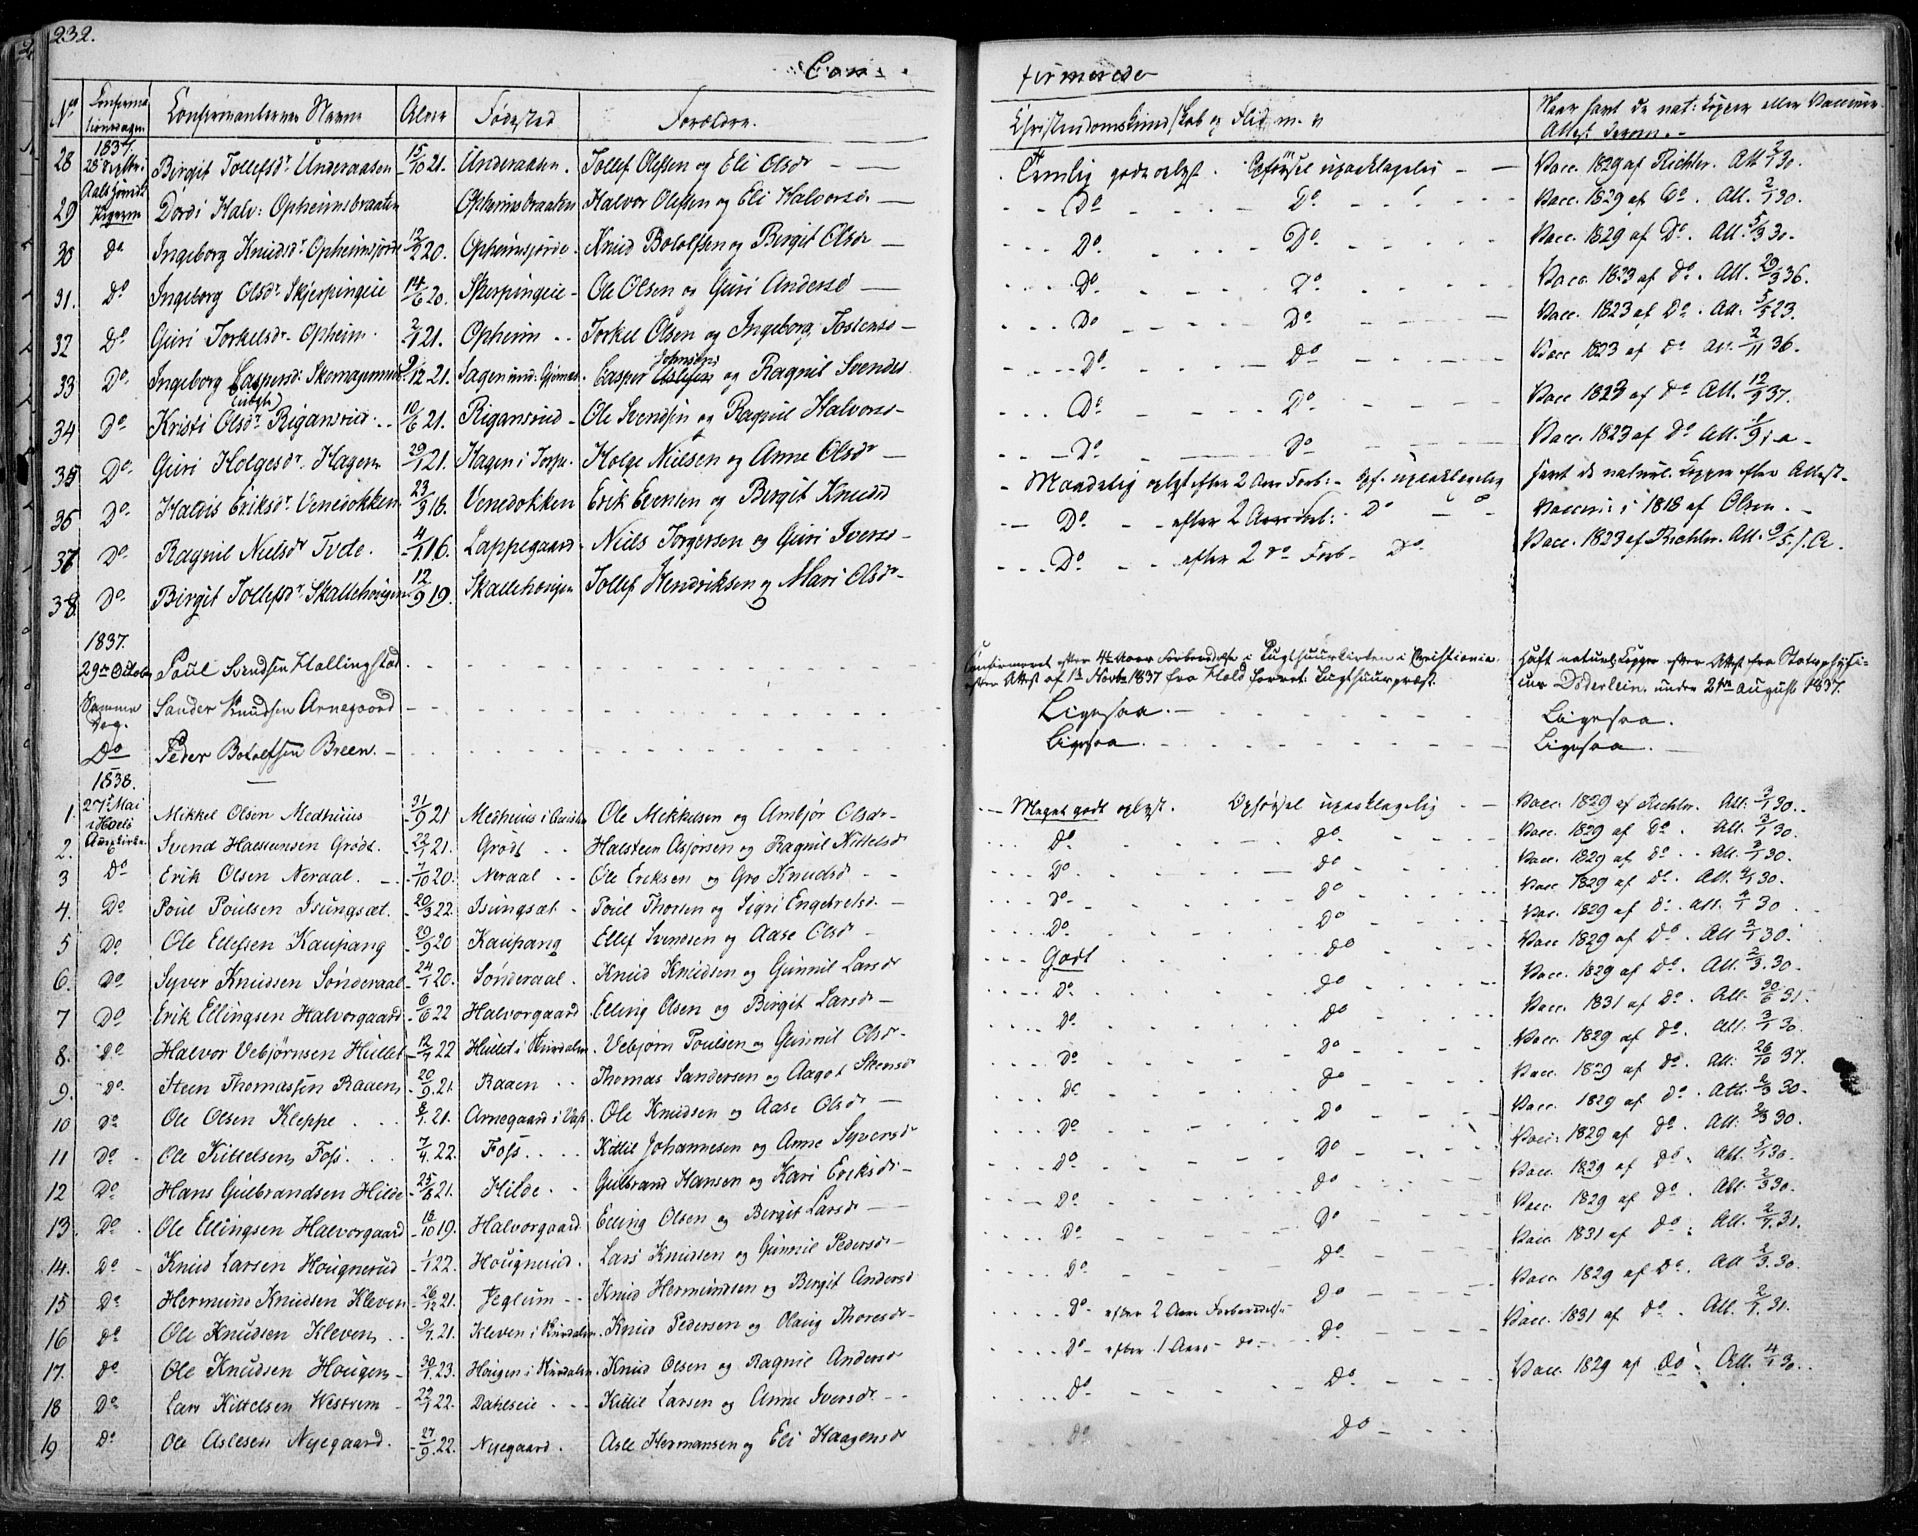 232.
Con-
firmerede
No Confirma-tionsdagen Confirmanternes Navne Alder Fødested Forældre. Christendomskundskab og Flid m. v. Naar havt de nat: Kopper eller Vaccine Attest derom.
1837.
28 Birgit Tollefsdr Underaasen 15/10 21. Underaasen. Tollef Olsen og Eli Olsdr — Temlig godt oplyst. Opførsel upaaklagelig — Vacc. 1829 af Richter. Att. 2/1 30.
29 Dordi Halv: Opheimsbraaten Opheimsbraaten Halvor Olsen og Eli Halvorsdr — Do Do Vacc. 1829 af Do. Att. 2/1 30.
30 Do Ingeborg Knudsdr Opheimsjorde 12/2 20. Opheimsjorde. Knud Botolfsen og Birgit Olsdr — Do Do Vacc. 1829 af Do. Att. 5/3 30.
31. Do Ingeborg Olsdr Skjerpingeie 14/6 20. Skerpingeie - Ole Olsen og Guri Andersd — Do Do Vacc. 1823 af do. Att. 29/3 36.
32 Do Guri Torkelsdr Opheim. 2/1 21. Opheim Torkel Olsen og Ingeborg Do Do Vacc. 1823 af Do. Att. 5/5 23.
33 Do. Ingeborg Caspersd: 9/12 21. Casper Johnsen og Ragnil Svends. Do Do Vacc 1823 af do Att. 2/11 36.
34 Do Kristi Olsdr Rigansrud. 10/6 21. Rigansrud - Ole Svendsen og Ragnil Halvors- Do Do. Vacc. 1829 af do Att. 12/9 37.
35 Do. Guri Holgesdr. Hagen 29/1 21. Hagen i Torpe. Holge Nielsen og Anne Olsdr — Do Do Vacc. 1823 af Do Att. 1/9 i a-
36 Do. Haldis Eriksdr Venedokken 23/3 18. Venedokken Erik Evensen og Birgit Knudsd - Maadelig oplyst efter 2 Aars Forb: - Opf. upaaklagelig havt de naturl. Kopper efter Attest-
37 Do Ragnil Nielsdr Tvede. 4/1 16. Lappegaard - Niels Torgersen og Guri Iversd- Do efter 2 Aars do: Do Vaccin: i 1818 af Olsen.
38. Do. Birgit Tollefsdr Skallehougen 12/9 19. Skallehougen Tollef Hendriksen og Mari Olsdr- Do efter 2 do Forb- Do. Vacc. 1823 af Richter. Att. 9/5 f. A.
1837.
29de Octobr Poul Svendsen Hallingstad Confirmeret efter 4 1/2 Aars Forberedelse i Tugthuuskirken i Christiania havt naturl. Kopper efter Attest fra Statsphysi-
efter Attest af 1ste Novbr 1837 fra Hold Tugthuuspræst. cus Døderlein. under 21de August 1837.
Samme Dag. Sander Knudsen Arnegaard Ligesaa. Ligesaa.
Do Peder Botolfsen Breen. Ligesaa Ligesaa.
1838.
1. 27de Mai Mikkel Olsen Medhuus 31/9 21 Medhuus i Ole Mikkelsen og Ambjør Olsdr- Meget godt oplyst. Opførsel upaaklagelig Vacc. 1829 af Richter. Att. 2/1 30.
2. Svend Halsteensen Grødt. 22/1 21. Grødt Halsteen Asjorsen og Ragnil Kittelsd Do do Vacc. 1829 af Do. Att. 2/1 30.
3 Do Erik Olsen Neraal. 7/10 20. Neraal Ole Eriksen og Gro Knudsd Do. do Vacc. 1829 af do. Att. 2/1 30.
4. Do Poul Poulsen Isungsæt. 20/3 22. Isungsæt Poul Thorsen og Sigri Engebretsd. Do- Do Vacc. 1829 af do. Att. 4/1 30.
5 Do. Ole Ellefsen Kaupang 29/9 20 Kaupang Ellef Svendsen og Aase Olsdr Do. Do Vac. 1829 af do. Att. 4/1 30
6. Do Syver Knudsen Sønderaal 24/1 20. Sønderaal. Knud Knudsen og Gunnil Larsdr Godt do Vacc 1829 af Do. Att 2/1 30.
7 Do Erik Ellingsen Halvorgaard 6/6 22 Halvorgaard Elling Olsen og Birgit Larsdr Do. do Vacc. 1829 af Do. Att. 2/3 30.
8. Do Halvor Vebjørnsen Hullet 12/4 22 Hullet i Skurdalen. Vebjørn Poulsen og Gunnil Olsd Do. Do Vacc. 1831 af Do. Att. 30/6 31.
9. Do. Steen Thomassen Raaen 20/9 21. Raaen Thomas Sandersen og Aagot Stensd Do Do Vacc. 1829 af do. Att. 3/1 30.
10 Do Ole Olsen Kleppe 8/1 21. Arnegaard i Ole Knudsen og Aase Olsdr Do do Vacc. 1829 af do. Att. 26/10 37.
11 Do. Ole Kittelsen Foss. 7/4 22. Foss Kittil Johannesen og Anne Syversd Do. Do Vacc. 1829 af do. Att. 2/3 30.
12 Do Hans Gulbrandsen Hilde 25/8 21. Hilde Gulbrand Hansen og Kari Eriksd Do. Do Vacc: 1829 af Do. Att. 2/3 30.
13. Do. Ole Ellingsen Halvorgaard 18/10 19. Halvorgaard. Elling Olsen og Birgit Larsdr Do. do Vacc. 1829 af Do. Att. 5/1 30.
14. Do Knud Larsen Hougnerud 1/1 22. Hougnerud. Lars Knudsen og Gunnil Pedersd Do. Do Vacc. 1829 af do. Att. 2/3 30.
15 Do Hermund Knudsen Kleven 26/12 21. Jeglum Knud Hermundsen og Birgit Andersd Do Do Vacc. 1831 af do. Att. 2/7 31.
16 Do Ole Knudsen Kleven 9/7 21. Kleven i Skurdalen. Knud Pedersen og Olaug Thoresd Do- efter 2 Aars Forberedelse Do Vacc. 1829 af Do. Att 2/3 30.
17. Do Ole Knudsen Hougen 30/1 23. Hougen i Skurdalen. Knud Olsen og Ragnil Andersd Do- efter 1 Aars do- Do Vacc. 1831 af do. Att. 2/7 31.
18 Do Lars Kittelsen Westrem 22/1 22. Dahlseie Kittil Larsen og Anne Iversdr Do. Do Vacc. 1829 af Do. Att. 4/1 30.
19 Do. Ole Aslesen Nyegaard. 27/9 22. Nyegaard. Asle Hermansen og Eli Haagensd Do Do